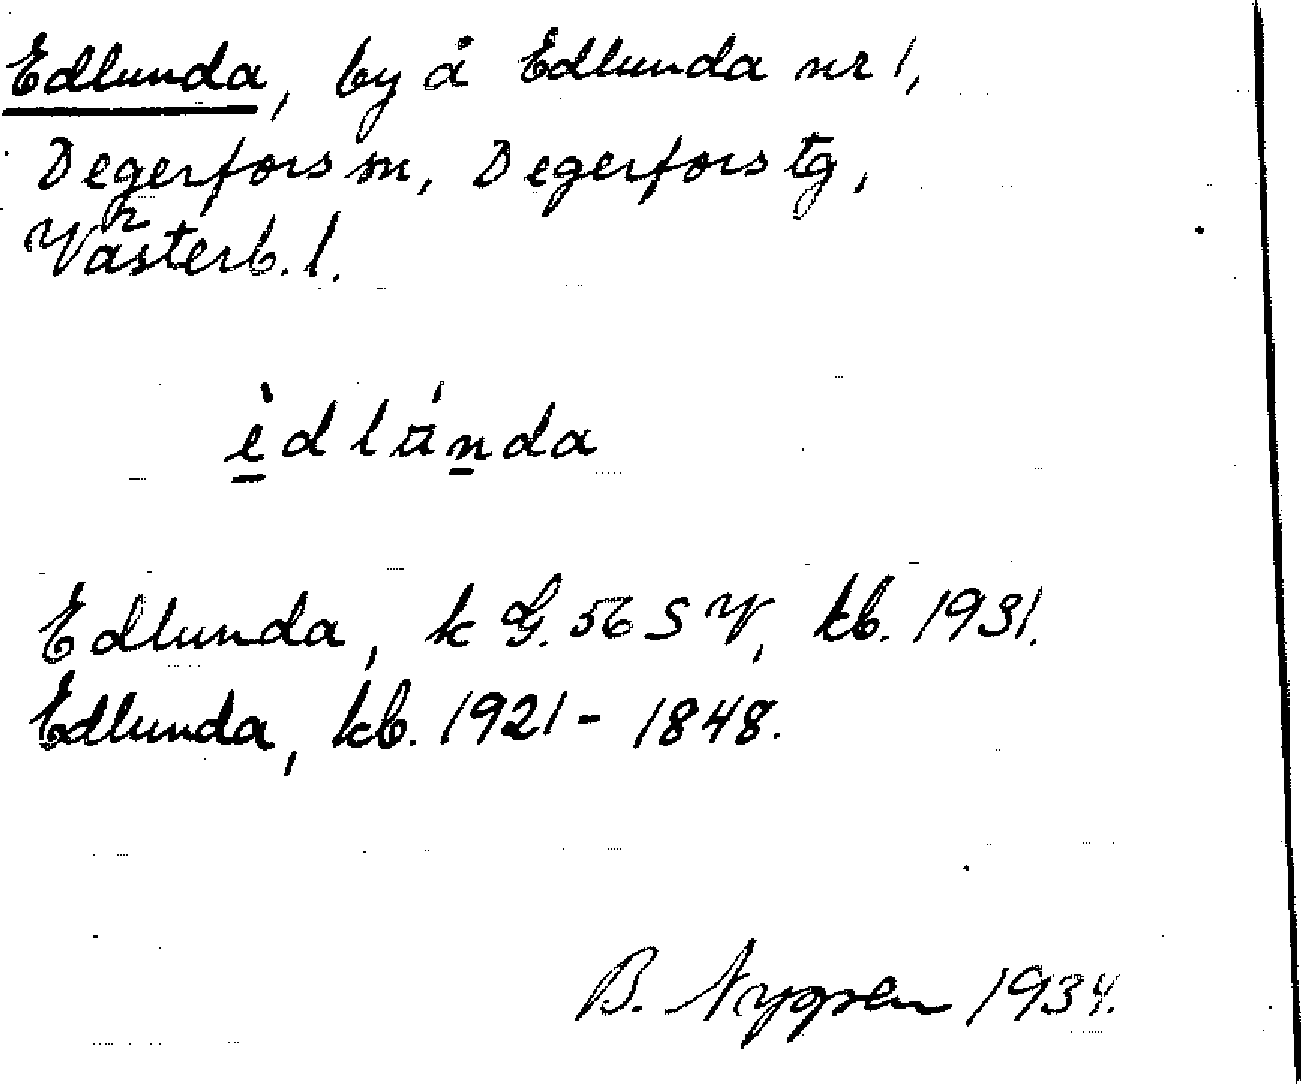 Edlunda, by å Edlunda nr 1,
Degerfors sn, Degerfors tg,
Västerb. l.
èdlúnda
Edlunda, k G. 56 SV, kb. 1931.
Edlunda, kb. 1921 - 1848.
B. Nygren 1934.